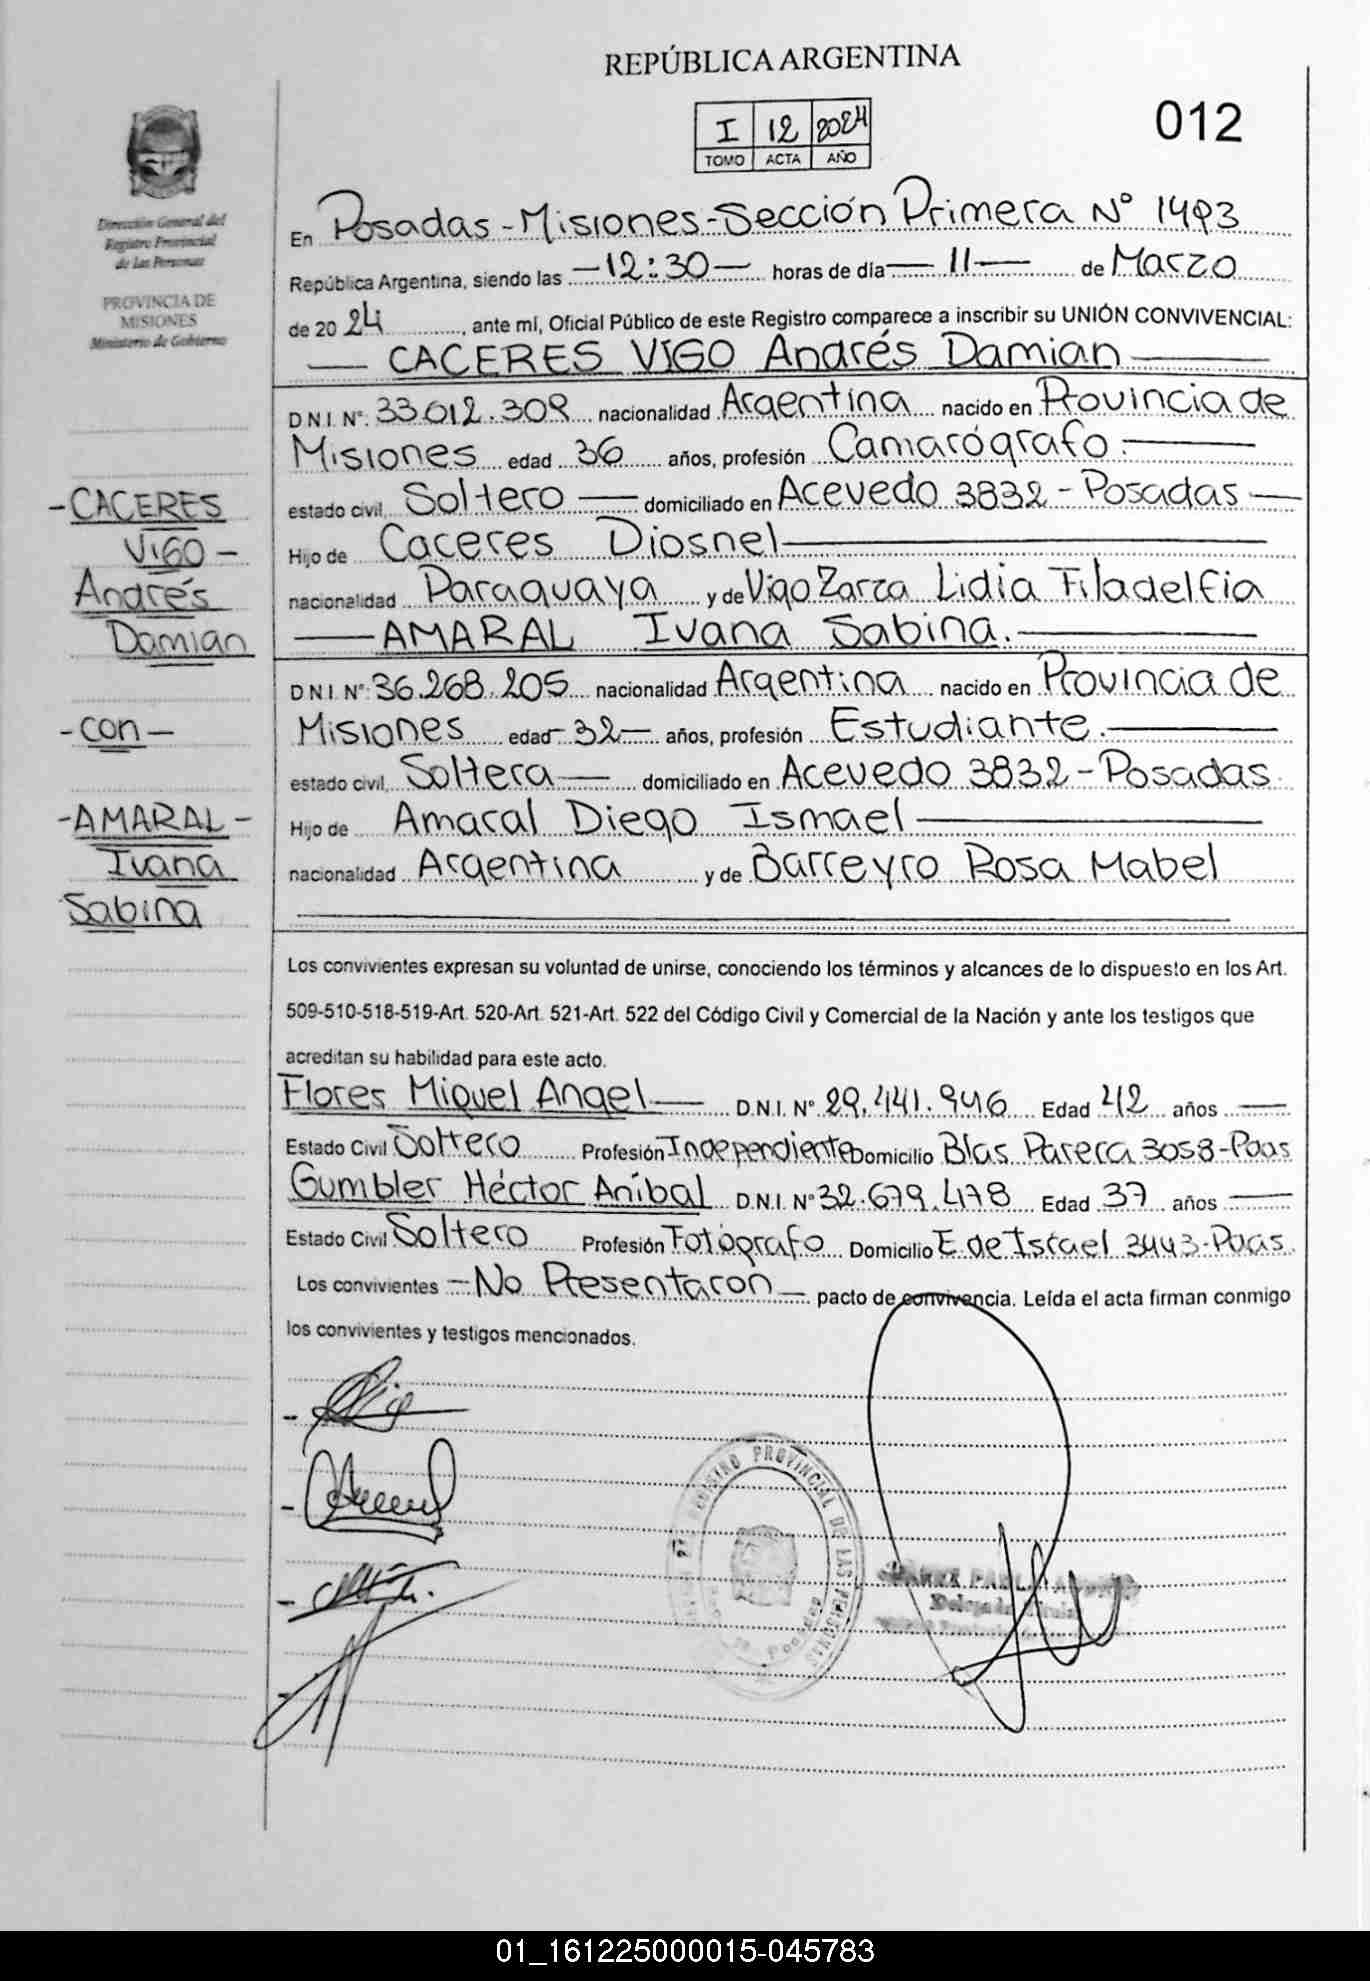 REPÚBLICA ARGENTINA
I 12 2024
TOMO ACTA AÑO
012
Dirección General del
Registro Provincial
de las Personas
PROVINCIA DE
MISIONES
Ministerio de Gobierno
En Posadas - Misiones - Sección Primera N° 1493
República Argentina, siendo las -12:30- horas de día - 11 - de Marzo
de 2024, ante mí, Oficial Público de este Registro comparece a inscribir su UNIÓN CONVIVENCIAL:
CACERES VIGO Andrés Damian
D.N.I. N°: 33.012.309 nacionalidad Argentina nacido en Provincia de
Misiones edad 36 años, profesión Camarógrafo.
estado civil, Soltero domiciliado en Acevedo 3832 - Posadas
Hijo de Caceres Diosnel
nacionalidad Paraguaya y de Vigo Zarza Lidia Filadelfia
AMARAL Ivana Sabina.
D.N.I. N°: 36.268.205 nacionalidad Argentina nacido en Provincia de
Misiones edad 32 años, profesión Estudiante.
estado civil, Soltera domiciliado en Acevedo 3832 - Posadas.
Hijo de Amaral Diego Ismael
nacionalidad Argentina y de Barreyro Rosa Mabel
-CACERES
VIGO-
Andrés
Damian
-con-
-AMARAL-
Ivana
Sabina
Los convivientes expresan su voluntad de unirse, conociendo los términos y alcances de lo dispuesto en los Art.
509-510-518-519-Art. 520-Art. 521-Art. 522 del Código Civil y Comercial de la Nación y ante los testigos que
acreditan su habilidad para este acto.
Flores Miguel Angel D.N.I. N° 29.441.946 Edad 42 años
Estado Civil Soltero Profesión Independiente Domicilio Blas Parera 3058-Pdas
Gumbler Héctor Aníbal D.N.I. N° 32.679.478 Edad 37 años
Estado Civil Soltero Profesión Fotógrafo Domicilio E. de Israel 3443-Pdas.
Los convivientes -No Presentaron- pacto de convivencia. Leída el acta firman conmigo
los convivientes y testigos mencionados.
REGISTRO PROVINCIAL DE LAS PERSONAS
Posadas
01_161225000015-045783